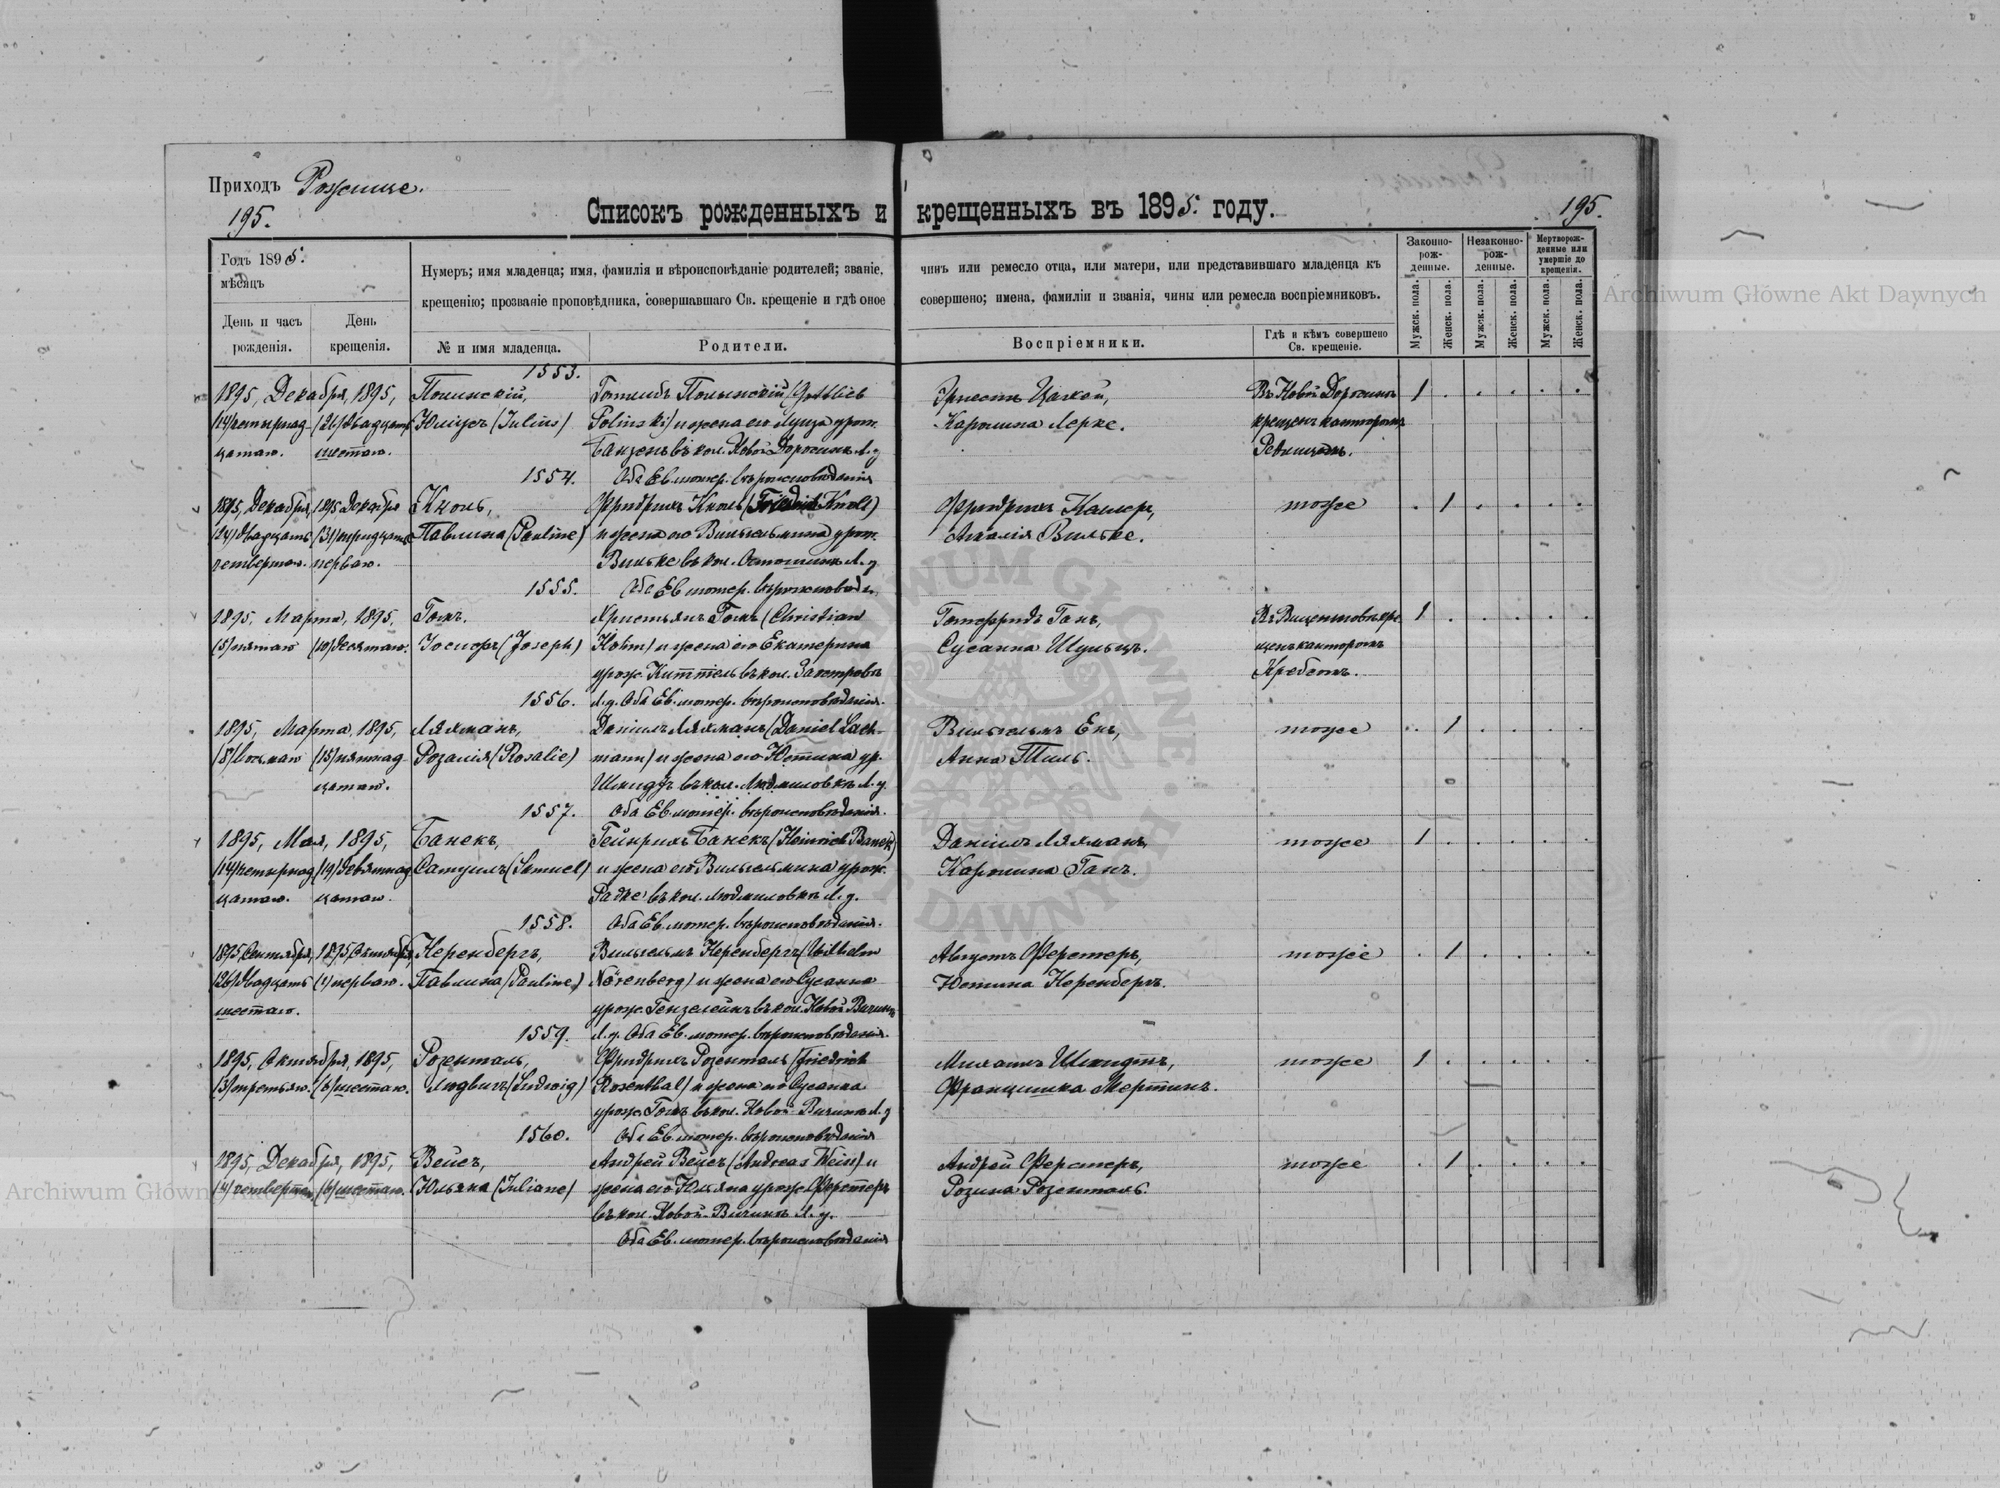 Приходъ Рожище.
195.
Списокъ рожденныхъ и крещенныхъ въ 1895. году.
195.
Годъ 1895.
мѣсяцъ
День и часъ рожденія.
День крещенія.
Нумеръ; имя младенца; имя, фамилія и вѣроисповѣданіе родителей; званіе, чинъ или ремесло отца, или матери, или представившаго младенца къ
крещенію; прозваніе проповѣдника, совершавшаго Св. крещеніе и гдѣ оное совершено; имена, фамиліи и званія, чины или ремесла воспріемниковъ.
№ и имя младенца.
Родители.
Воспріемники.
Гдѣ и кѣмъ совершено Св. крещеніе.
Законно-рож-денные.
Незаконно-рож-денные.
Мертворож-денные или умершіе до крещенія.
Мужск. пола.
Женск. пола.
Мужск. пола.
Женск. пола.
Мужск. пола.
Женск. пола.
1553.
1895, Декабря, 1895,
(14) четырнад- (26) двадцать
цатаго. шестаго.
Полинскій,
Юліусъ (Julius)
Готлибъ Полинскій (Gottlieb
Polinski) и жена его Луиза урож.
въ кол. Новой Доросинѣ Л. у.
Оба Ев. лютер. вѣроисповѣданія
Эрнестъ
Каролина Лерке.
Въ Новой Доросинѣ
крещенъ канторомъ
1
1554.
1895, Декабря, 1895 Декабря
(24) двадцать (31) тридцать
четвертаго. перваго.
Кноль,
Павлина (Pauline)
Фридрихъ Кноль (Friedrich Knoll)
и жена его Вильгельмина урож.
Вильке въ кол. Л. у.
Оба Ев. лютер. вѣроисповѣд.
Фридрихъ
Амалія Вильке.
тоже
1
1555.
1895, Марта, 1895,
(5) пятаго (10) десятаго.
Гомъ.
Іосифъ (Joseph)
Христьянъ Гомъ (Christian
Hohm) и жена его Екатерина
урож. Киттель въ кол.
Л. у. Оба Ев. лютер. вѣроисповѣданія.
Готфридъ Ганъ,
Сусанна Шульцъ.
Въ Вицентовкѣ кре-
щенъ канторомъ
Кребсомъ.
1
1556.
1895, Марта, 1895,
(8) восьмаго (15) пятнад-
цатаго.
Ляхманъ,
Розалія (Rosalie)
Даніилъ Ляхманъ (Daniel Lach-
mann) и жена его Юстина ур.
Шмидтъ въ кол. Людмиловкѣ Л. у.
Оба Ев. лютер. вѣроисповѣданія.
Вильгельмъ Екъ,
Анна Тиль.
тоже
1
1557.
1895, Мая, 1895,
(14) четырнад- (19) девятнад-
цатаго. цатаго.
Банекъ,
Самуилъ (Samuel)
Гейнрихъ Банекъ (Heinrich Banek)
и жена его Вильгельмина урож.
Радке въ кол. Людмиловкѣ Л. у.
Оба Ев. лютер. вѣроисповѣданія.
Даніилъ Ляхманъ,
Каролина Ганъ.
тоже
1
1558.
1895, Сентября, 1895, Октября,
(26) двадцать (1) перваго.
шестаго.
Неренбергъ,
Павлина (Pauline)
Вильгельмъ Неренбергъ (Wilhelm
Nörenberg) и жена его Сусанна
урож. Гензелейнъ въ кол. Новой Вичинѣ
Л. у. Оба Ев. лютер. вѣроисповѣданія.
Августъ Ферстеръ,
Юстина Неренбергъ.
тоже
1
1559.
1895, Октября, 1895,
(3) третьяго. (6) шестаго.
Розенталь,
Людвигъ (Ludwig)
Фридрихъ Розенталь (Friedrich
Rosenthal) и жена его Сусанна
урож. Гомъ въ кол. Новой-Вичинѣ Л. у.
Оба Ев. лютер. вѣроисповѣданія
Михаилъ Шмидтъ,
Францишка Мертинъ.
тоже
1
1560.
1895, Декабря, 1895,
(4) четвертаго (6) шестаго.
Вейсъ,
Юльяна (Juliane)
Андрей Вейсъ (Andreas Weiss) и
жена его Юльяна урож. Ферстеръ
въ кол. Новой-Вичинѣ Л. у.
Оба Ев. лютер. вѣроисповѣданія
Андрей Ферстеръ,
Розина Розенталь.
тоже
1
Archiwum Główne Akt Dawnych
ARCHIWUM GŁÓWNE AKT DAWNYCH
Archiwum Główne